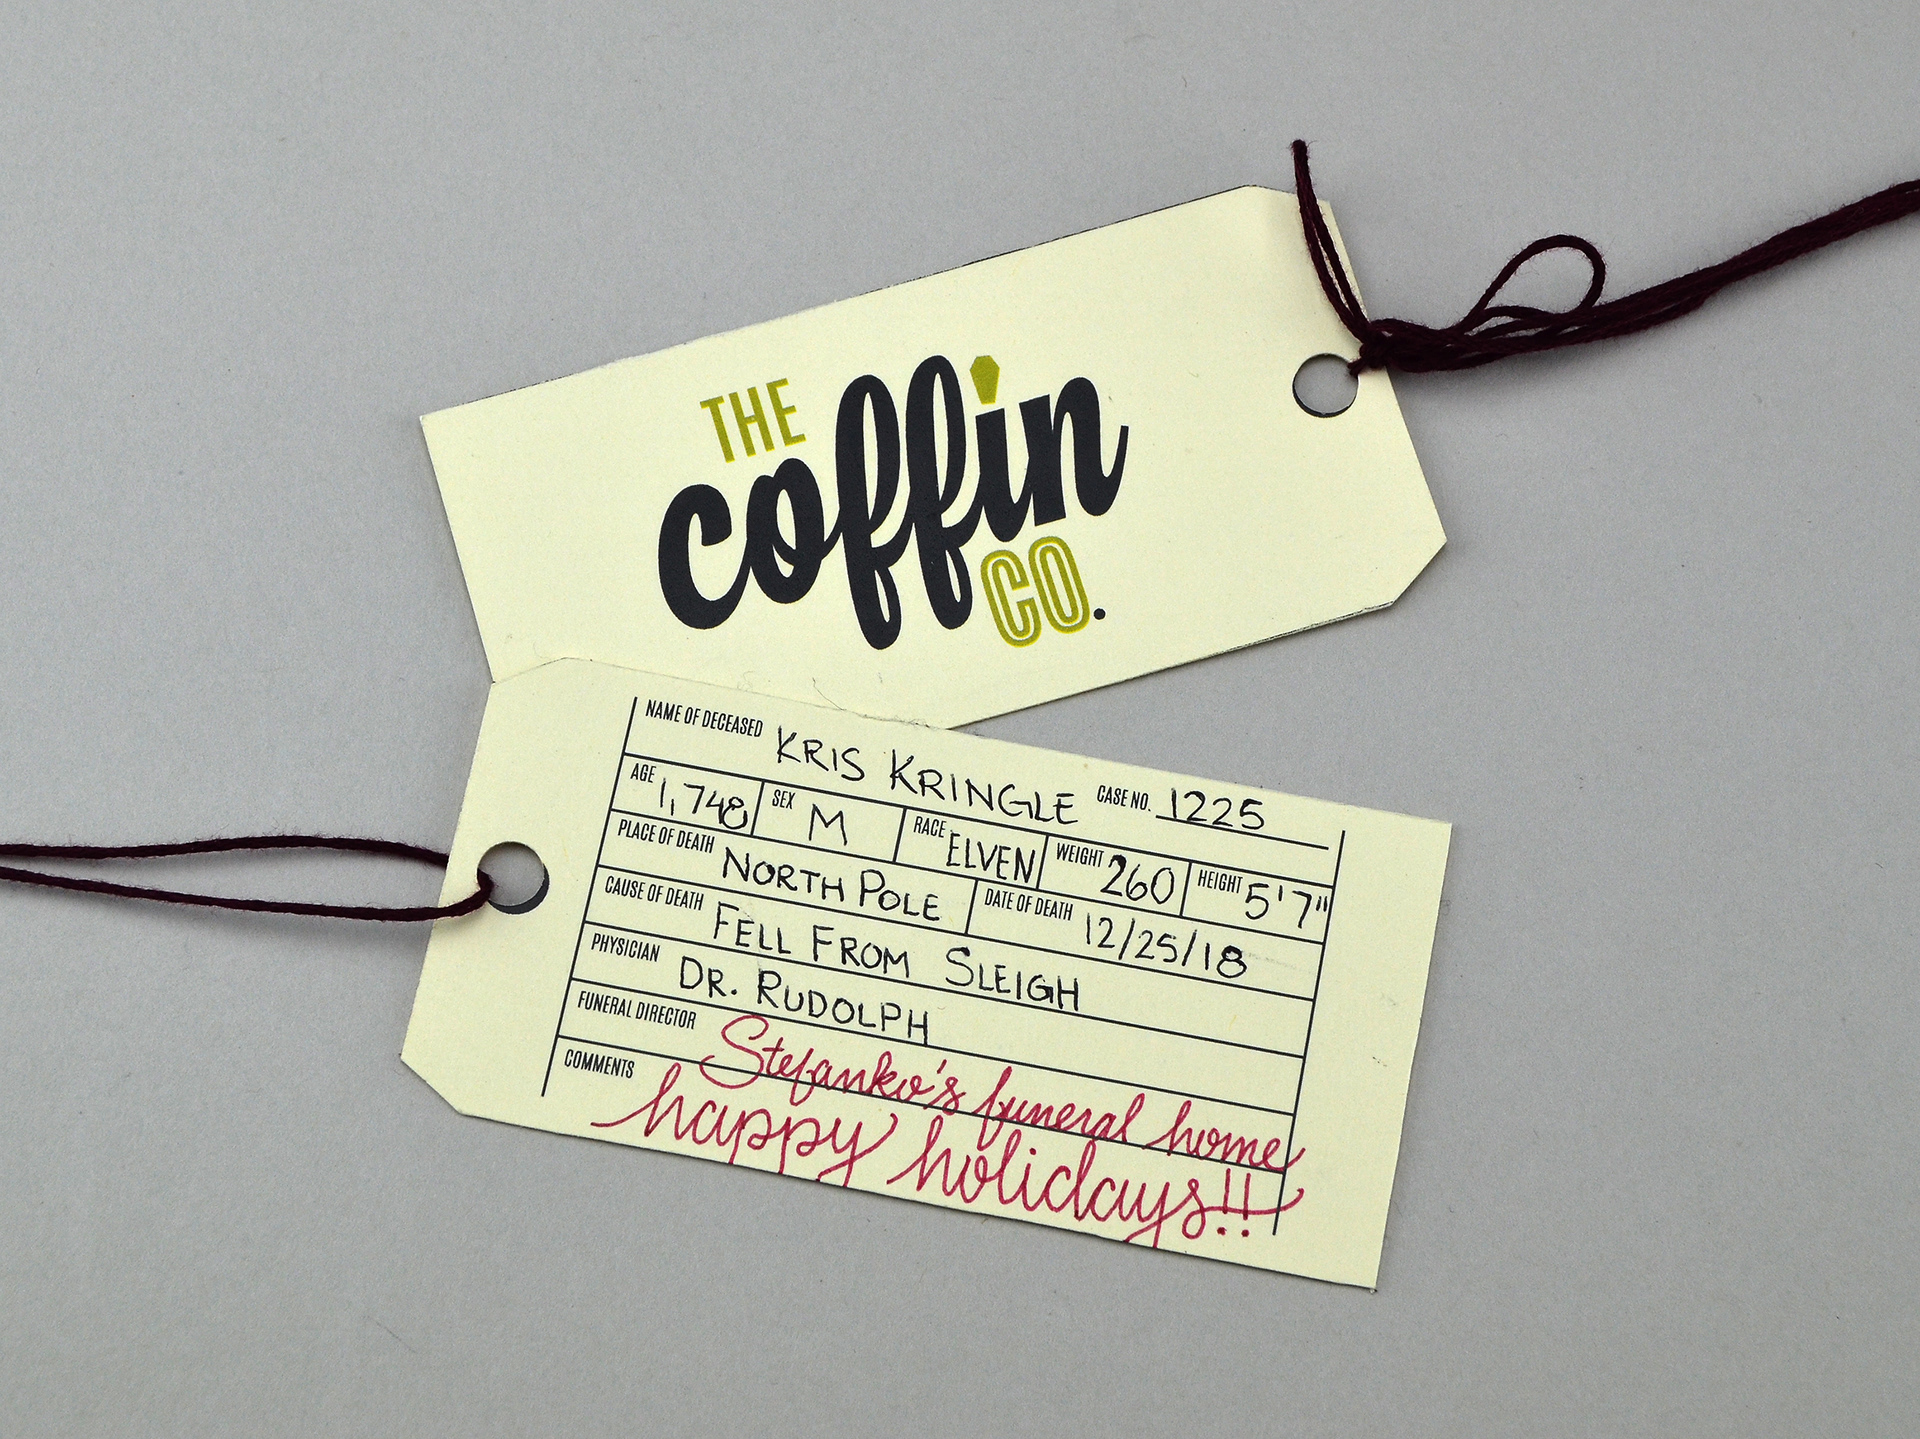 THE
coffin
CO.
NAME OF DECEASED KRIS KRINGLE CASE NO. 1225
AGE 1,748 SEX M RACE ELVEN WEIGHT 260 HEIGHT 5'7"
PLACE OF DEATH NORTH POLE DATE OF DEATH 12/25/18
CAUSE OF DEATH FELL FROM SLEIGH
PHYSICIAN DR. RUDOLPH
FUNERAL DIRECTOR Stefanko's funeral home
COMMENTS happy holidays!!